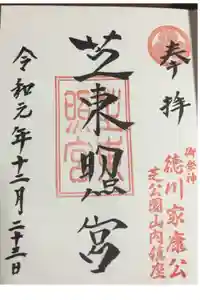 奉拝
御祭神
徳川家康公
芝公園山内鎮座
芝東照宮
令和元年十二月二十三日